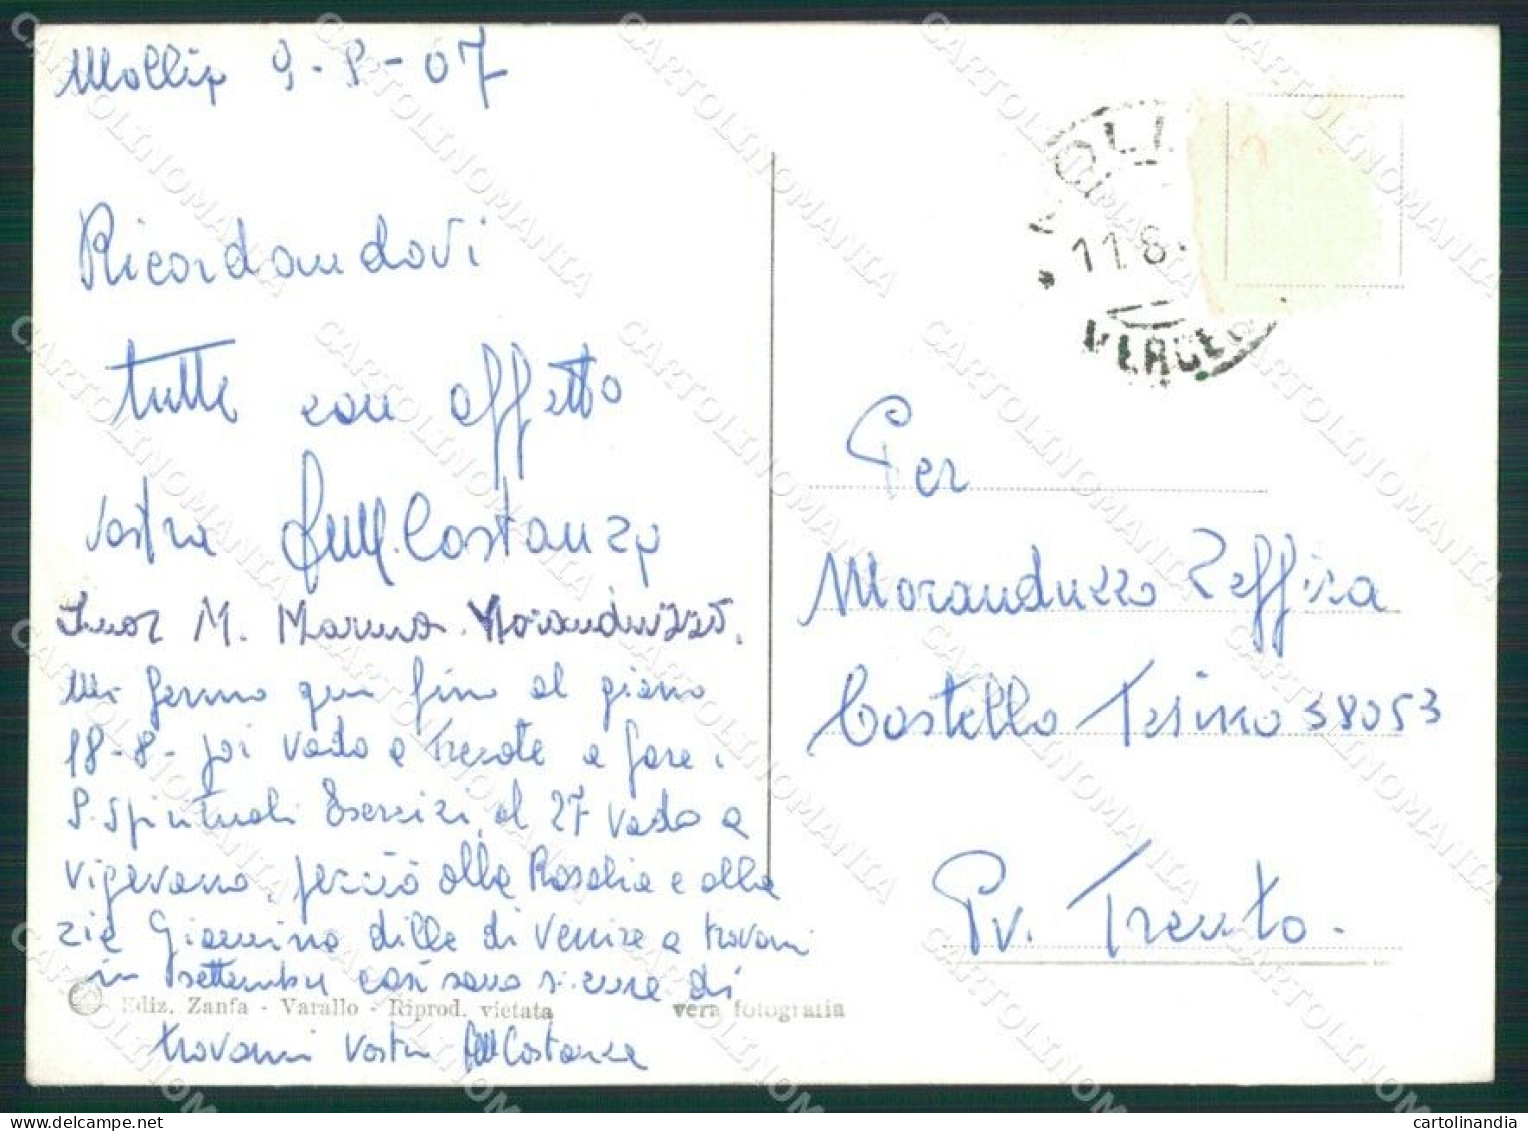 Mollia 9-8-07
Ricordandovi
tutte con affetto
vostra Costanza
Suor M. Moranduzzo.
Mi fermo qui fino al giorno
18-8- poi vado a Trecate a fare i
S. Spirituali Esercizi, al 27 vado a
Vigevano, perciò alla Rosalia e alla
zia Giannina dille di venire a trovarmi
in settembre così sono sicure di
trovarmi vostra Costanza
Ediz. Zanfa - Varallo - Riprod. vietata
vera fotografia
11.8.
Per
Moranduzzo Zeffira
Castello Tesino 38053
Pv. Trento.
CARTOLINOMANIA
cartolinandia